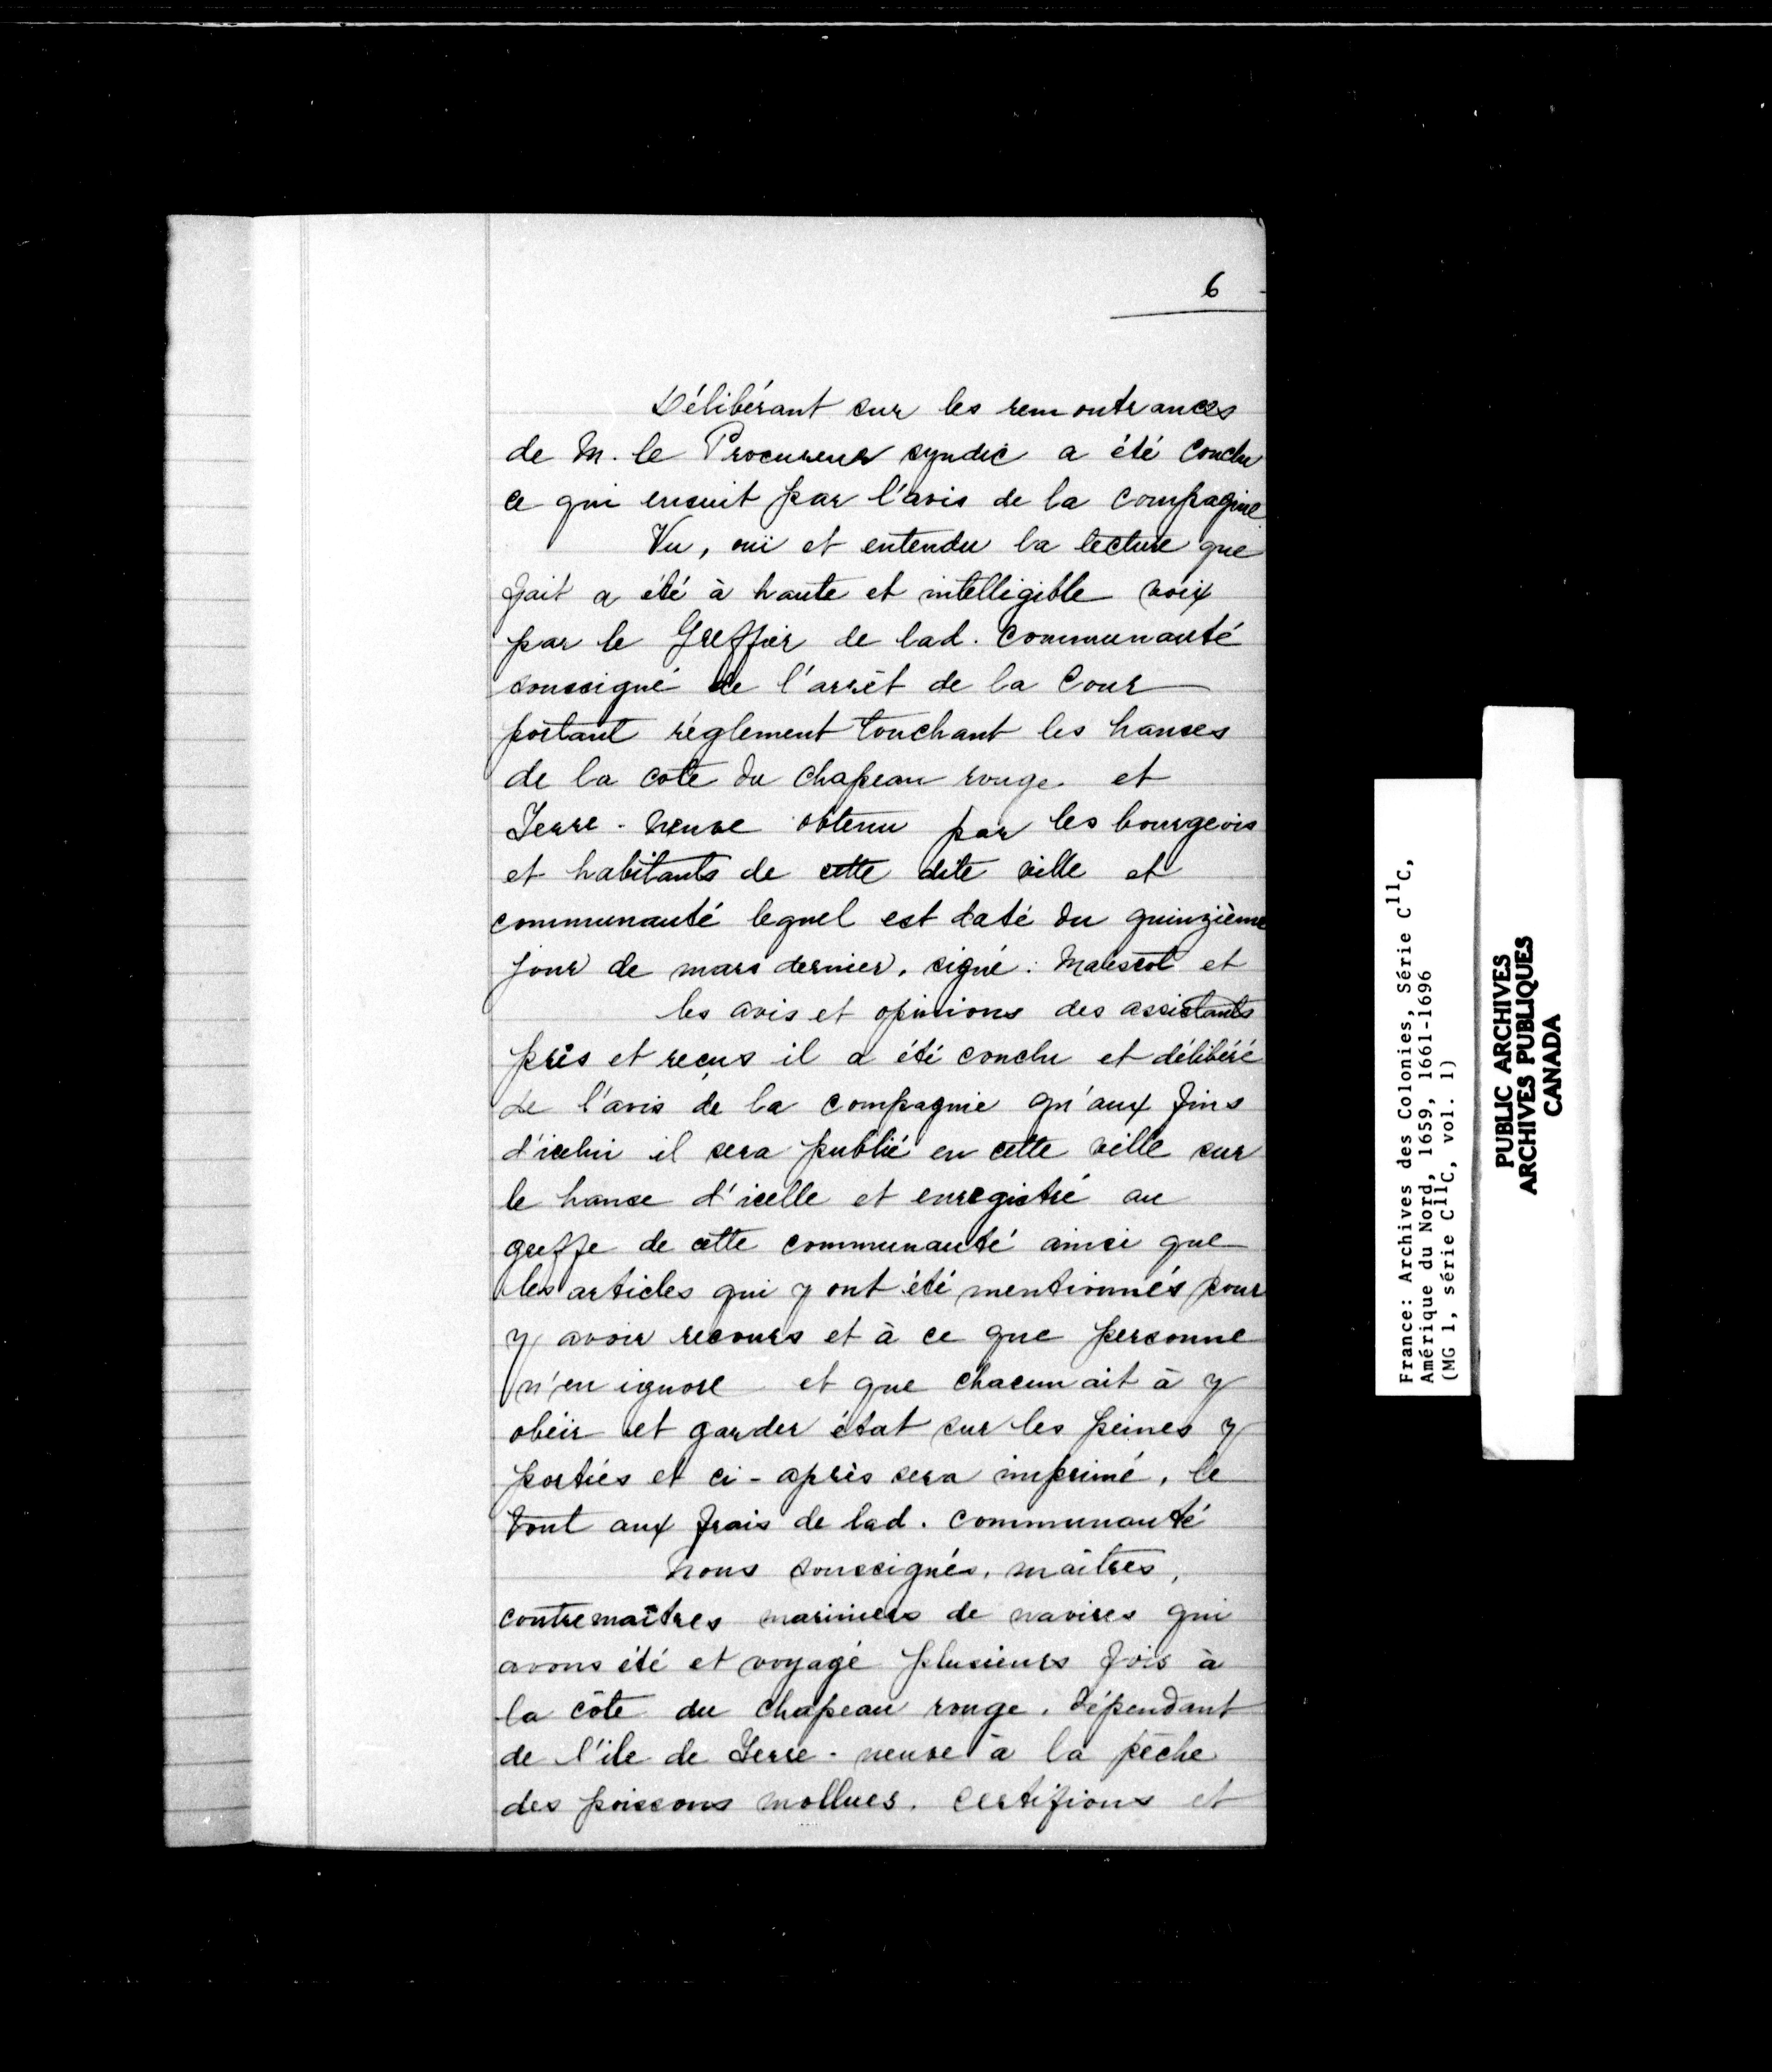 6
Délibérant sur les remontrances
de M. le Procureur syndic a été conclu
ce qui ensuit par l'avis de la compagnie
Vu, ouï et entendu la lecture que
fait a été à haute et intelligible voix
par le Greffier de lad. communauté
soussigné de l'arrêt de la Cour
portant réglement touchant les hanses
de la cote du chapeau rouge et
Terre-neuve obtenu par les bourgeois
et habitants de cette dite ville et
communauté lequel est daté du quinzième
jour de mars dernier, signé: Malescot et
les avis et opinions des assistants
pris et reçus il a été conclu et délibéré
de l'avis de la compagnie qu'aux fins
d'icelui il sera publié en cette ville sur
le hanse d'icelle et enregistré au
greffe de cette communauté ainsi que
les articles qui y ont été mentionnés pour
y avoir recours et à ce que personne
n'en ignore et que chacun ait à y
obéir et garder état sur les peines y
portées et ci-après sera imprimé, le
tout aux frais de lad. communauté
Nous soussignés, maîtres,
contremaîtres mariniers de navires qui
avons été et voyagé plusieurs fois à
la côte du chapeau rouge, dépendant
de l'ile de Terre-neuve à la pêche
des poissons mollues, certifions et
France: Archives des Colonies, Série C11C,
Amérique du Nord, 1659, 1661-1696
(MG 1, série C11C, vol. 1)
PUBLIC ARCHIVES
ARCHIVES PUBLIQUES
CANADA